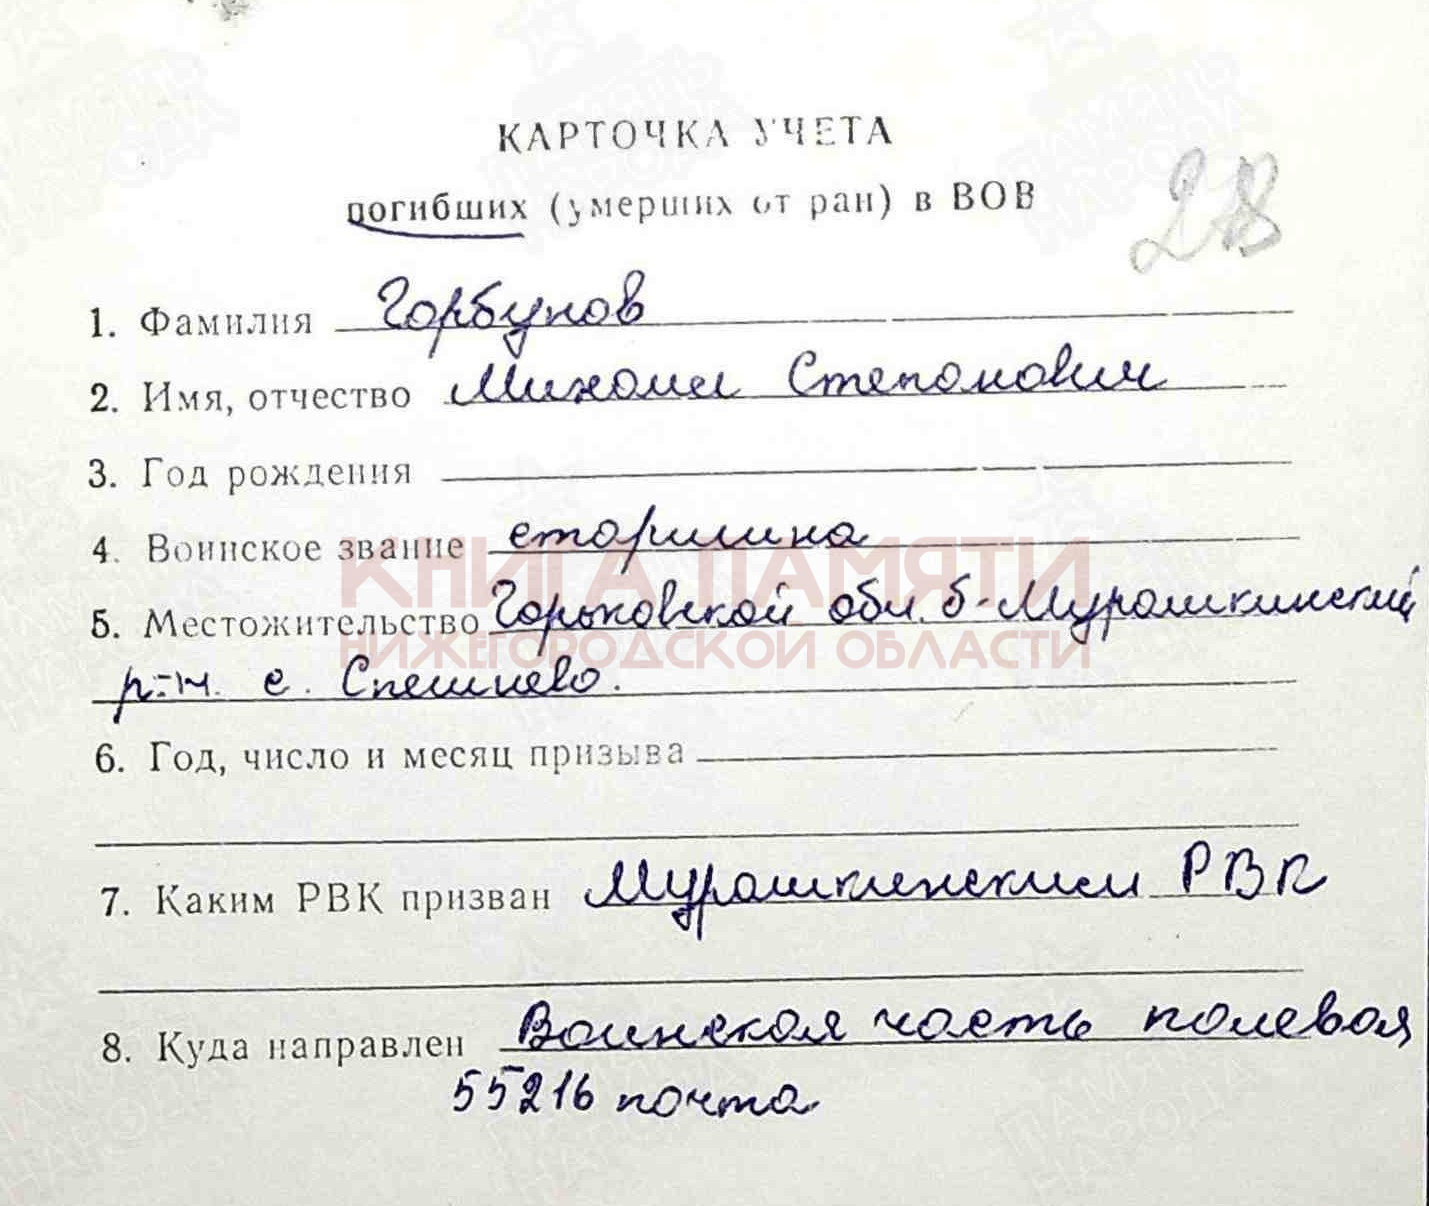 КАРТОЧКА УЧЕТА
погибших (умерших от ран) в ВОВ
28
1. Фамилия Горбунов
2. Имя, отчество Михаил Степанович
3. Год рождения
4. Воинское звание старшина
КНИГА ПАМЯТИ
5. Местожительство Горьковской обл. б-Мурашкинский
НИЖЕГОРОДСКОЙ ОБЛАСТИ
р-н. с. Спешнево.
6. Год, число и месяц призыва
7. Каким РВК призван Мурашкинским РВК
8. Куда направлен Воинская часть полевая
55216 почта